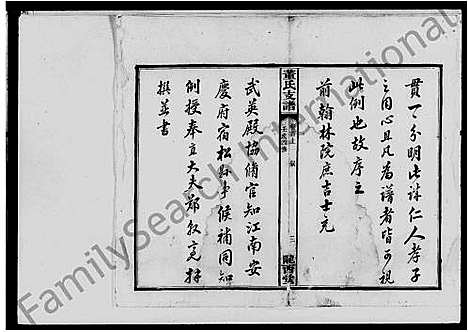 貫一分明此誠仁人孝子
之用心且凡為譜者皆可視
此例也故序之
前翰林院庶吉士充
董氏支譜
三
隴西堂
武英殿協脩官知江南安
慶府宿松縣事候補同知
例授奉直大夫鄭敦亮拜
撰並書
FamilySearch International